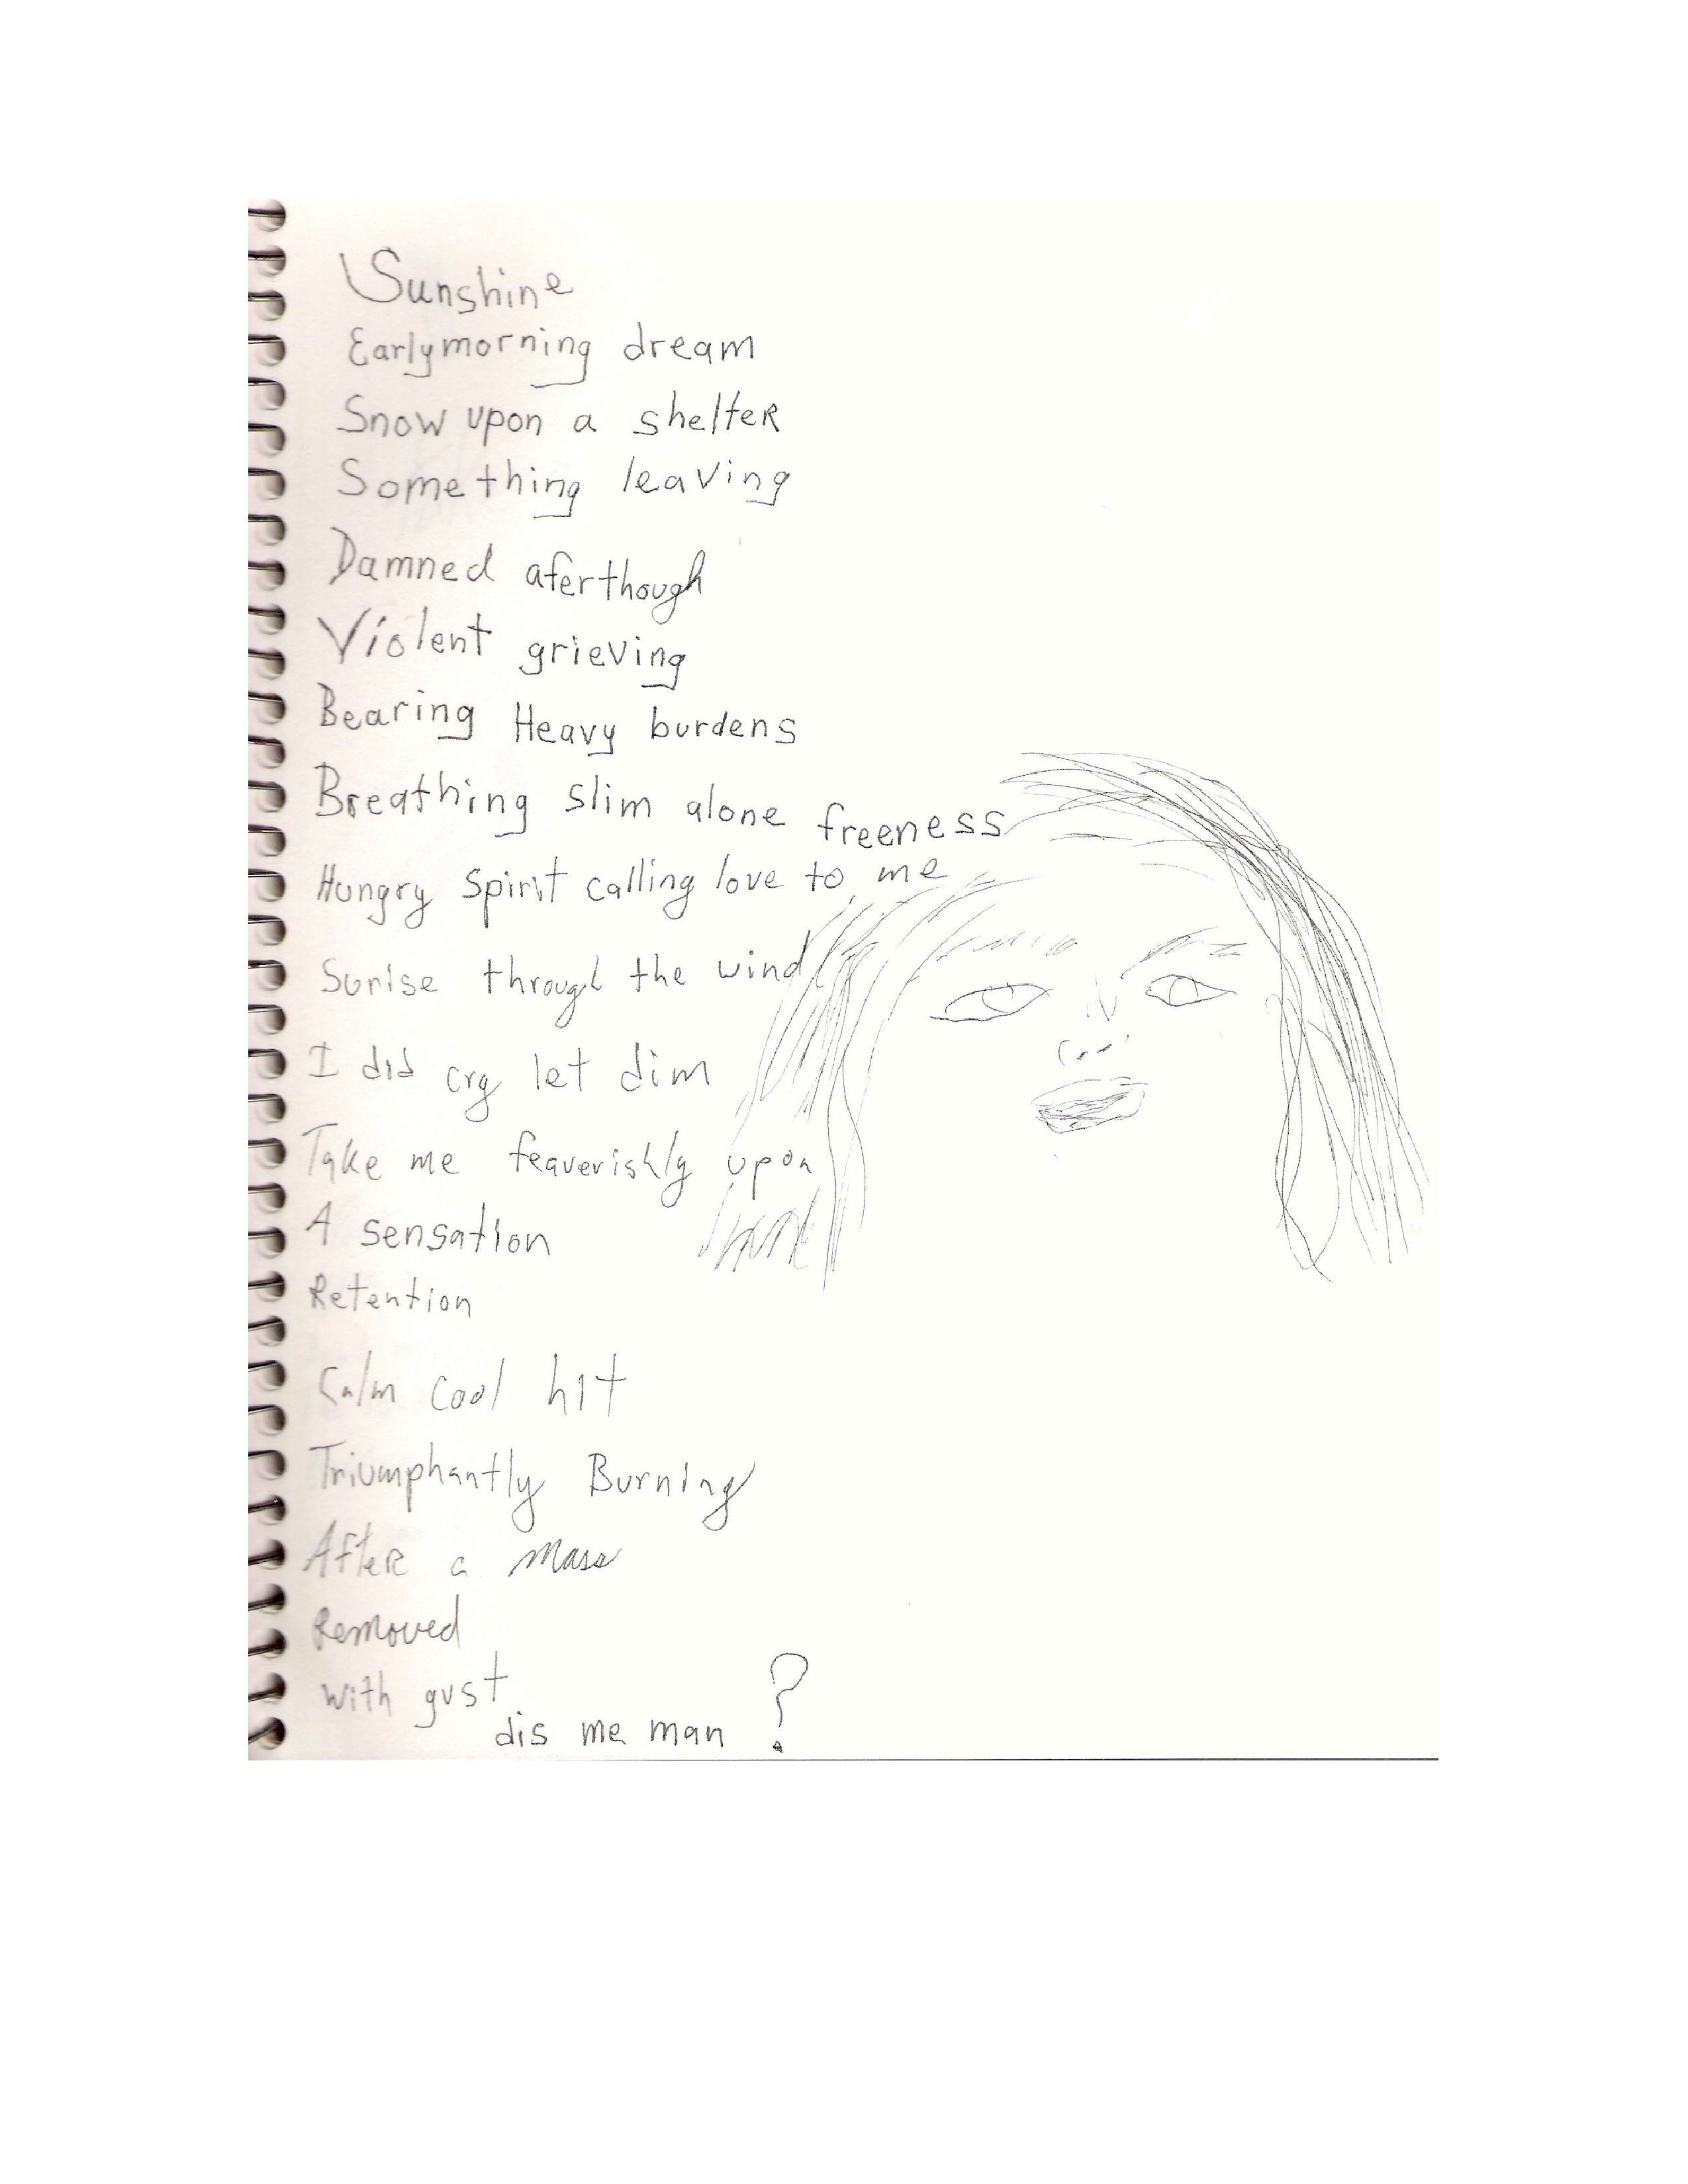 Sunshine
Earlymorning dream
Snow upon a shelteR
Something leaving
Damned aferthough
Violent grieving
Bearing Heavy burdens
Breathing slim alone freeness
Hungry spirit calling love to me
Sunrise through the wind
I did cry let dim
Take me feaverishly upon
A sensation
Retention
Calm cool hit
Triumphantly Burning
AfteR a mass
Removed
with gust
dis me man ?